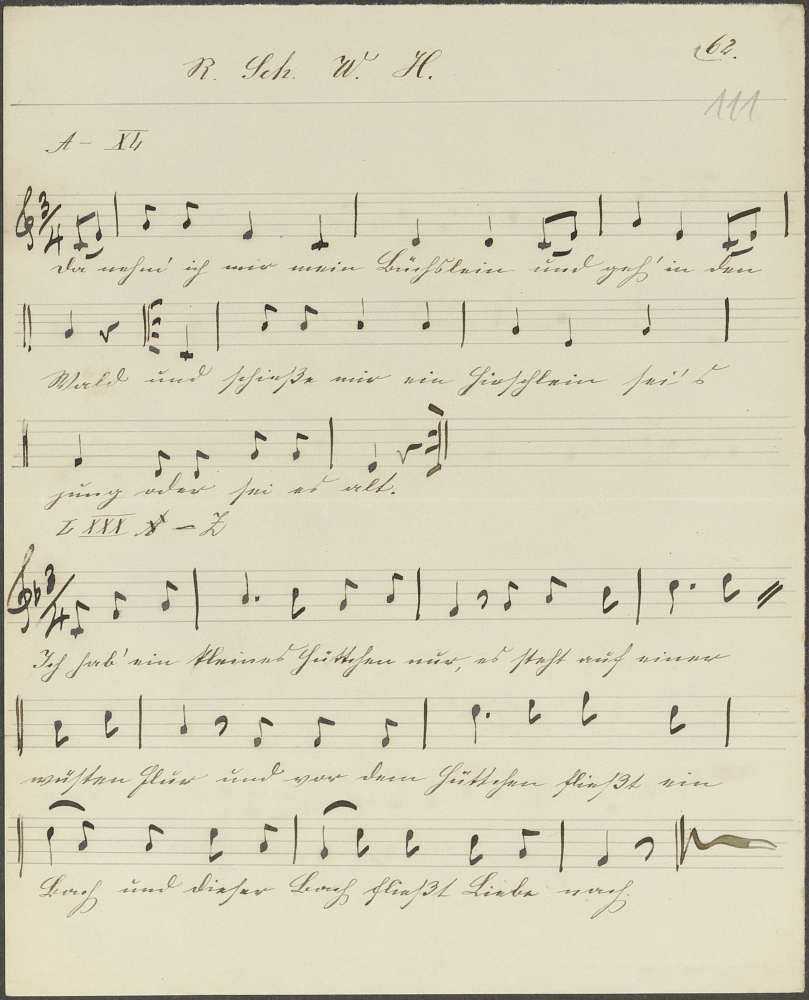 62.
R. Sch. W. H.
111
A – XL
3/4
Da nehm' ich mir mein Büchslein und geh' in den
Wald und schieße mir ein Hirschlein sei's
jung oder sei es alt.
L XXX – Z
3/4
Ich hab' ein kleines Hüttchen nur, es steht auf einer
wüsten Flur und vor dem Hüttchen fließt ein
Bach und dieser Bach fließt Liebe nach.